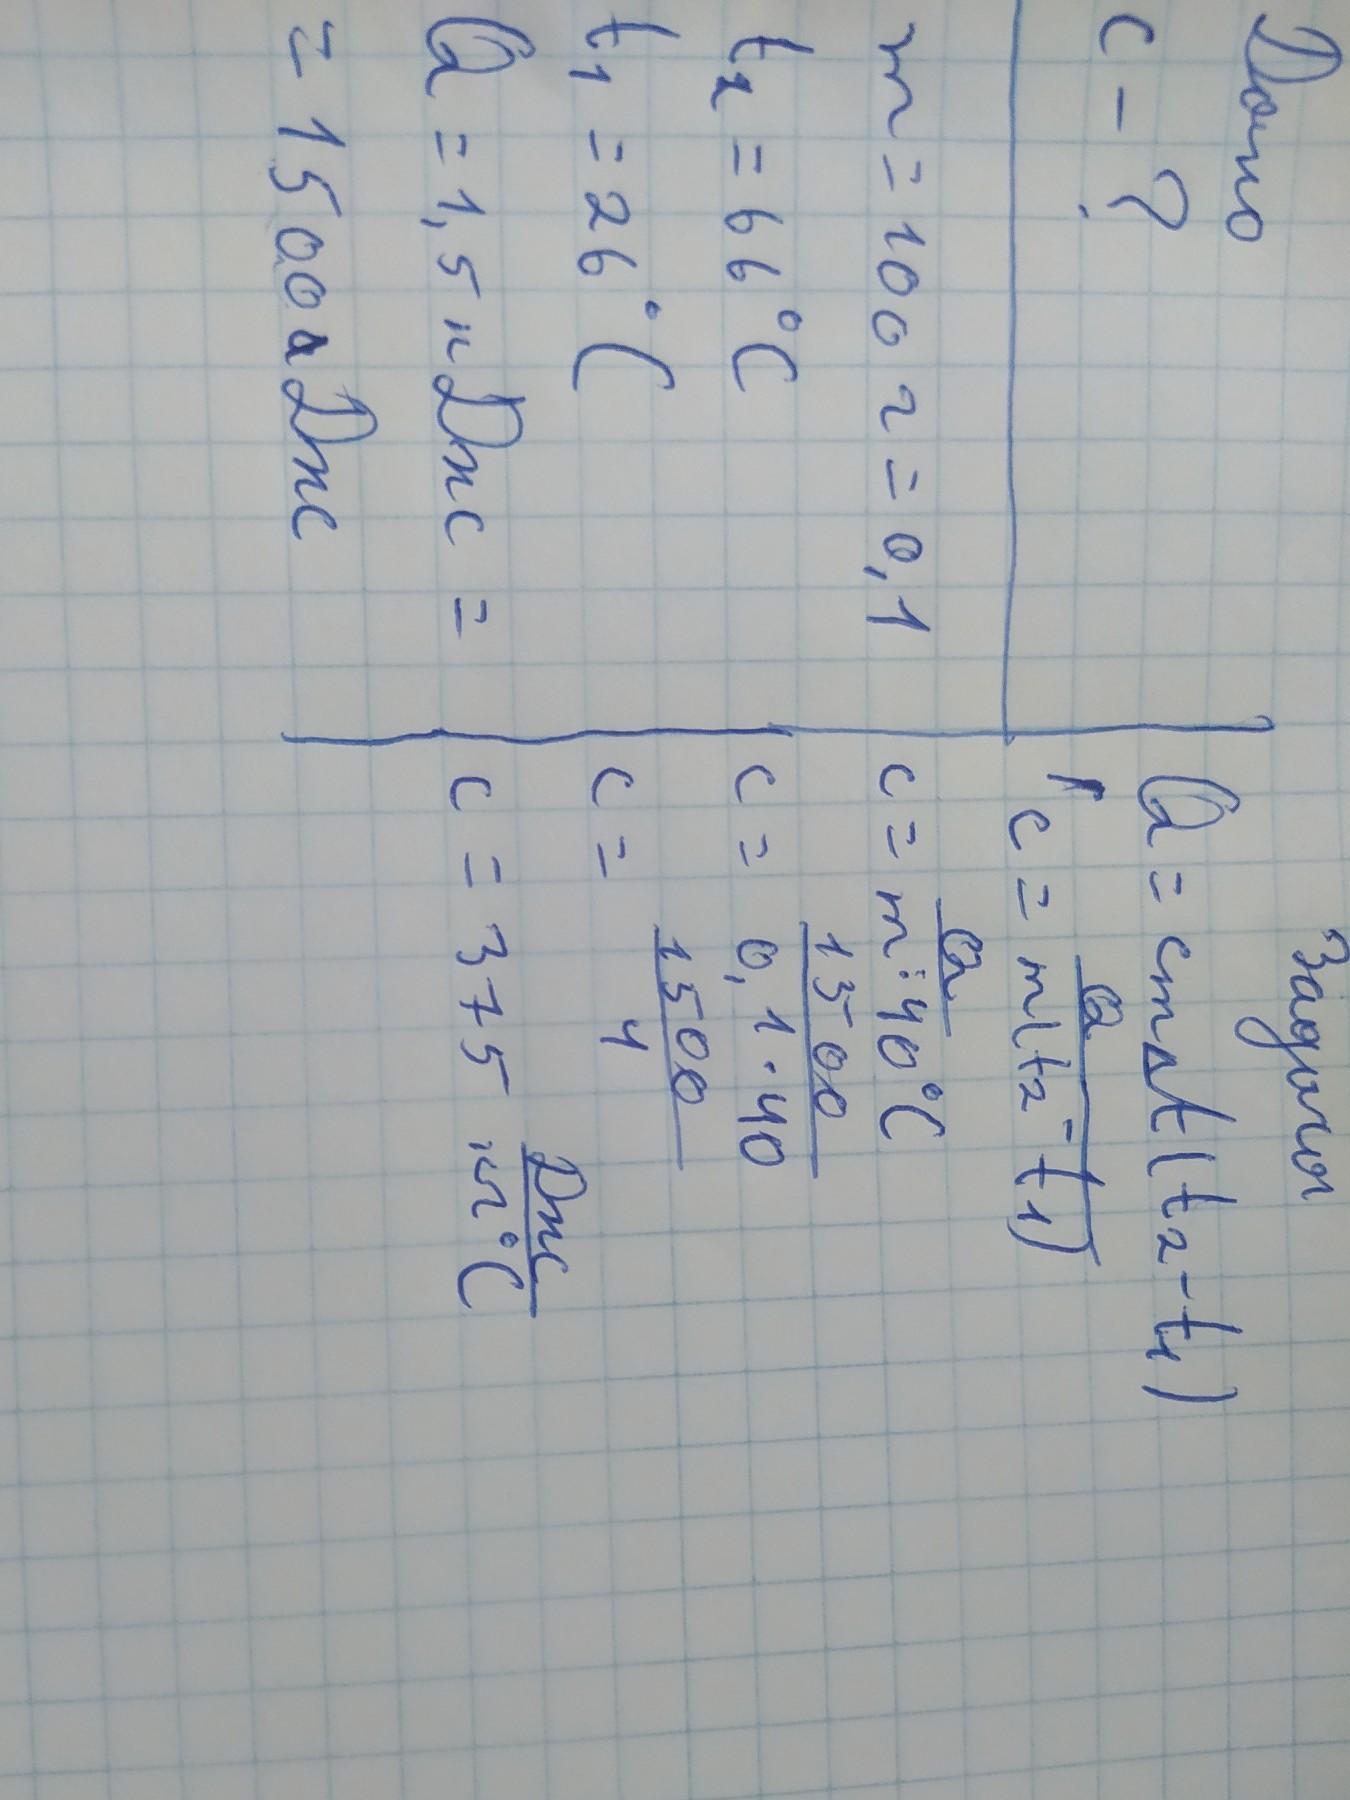 Задача
Дано
c - ?
m = 100 г = 0,1
t₂ = 66°C
t₁ = 26°C
Q = 1,5 кДж =
= 1500 Дж
Q = cmΔt(t₂ - t₁)
c = Q / m(t₂ - t₁)
c = Q / m · 40°C
c = 1500 / 0,1 · 40
c = 1500 / 4
c = 375 Дж / кг°C